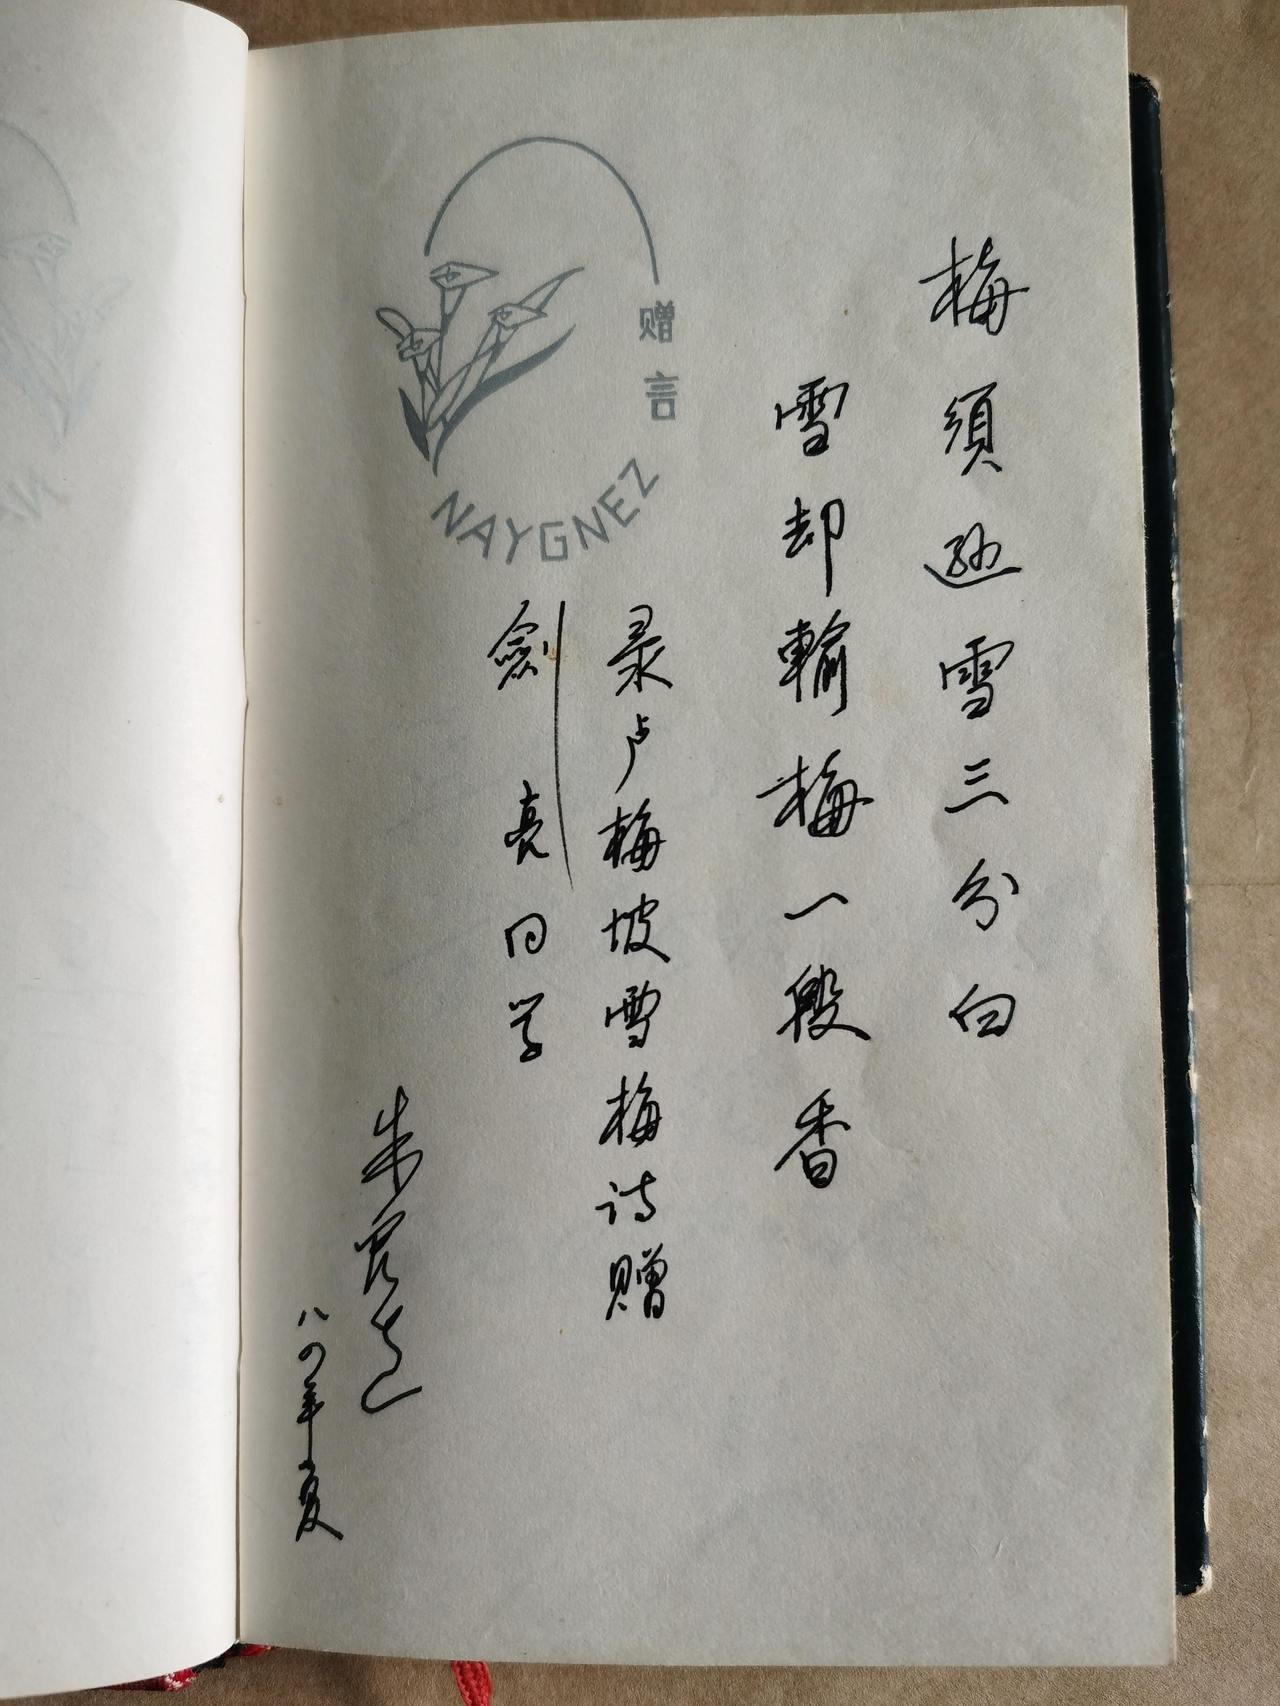 梅須遜雪三分白
雪却輸梅一段香
录卢梅坡雪梅诗赠
劍亮同学
朱
八四年夏
赠言
NAYGNEZ